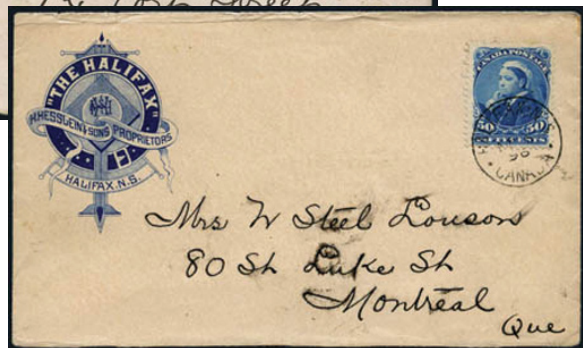 "THE HALIFAX"
H. HESSLEIN & SONS PROPRIETORS
HALIFAX, N.S.
CANADA POSTAGE
50 50
CENTS
CANADA
Mrs W Steel Lousons
80 St Luke St
Montreal
Que